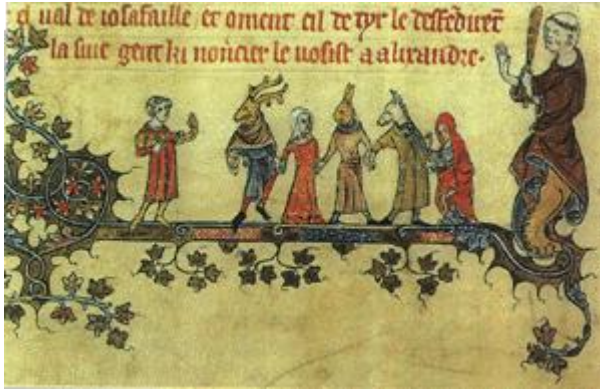 el ual de iosafaille et coment cil de tyr le desfēdirēt
la siue gent ki nōcier le uosist a alixandre.